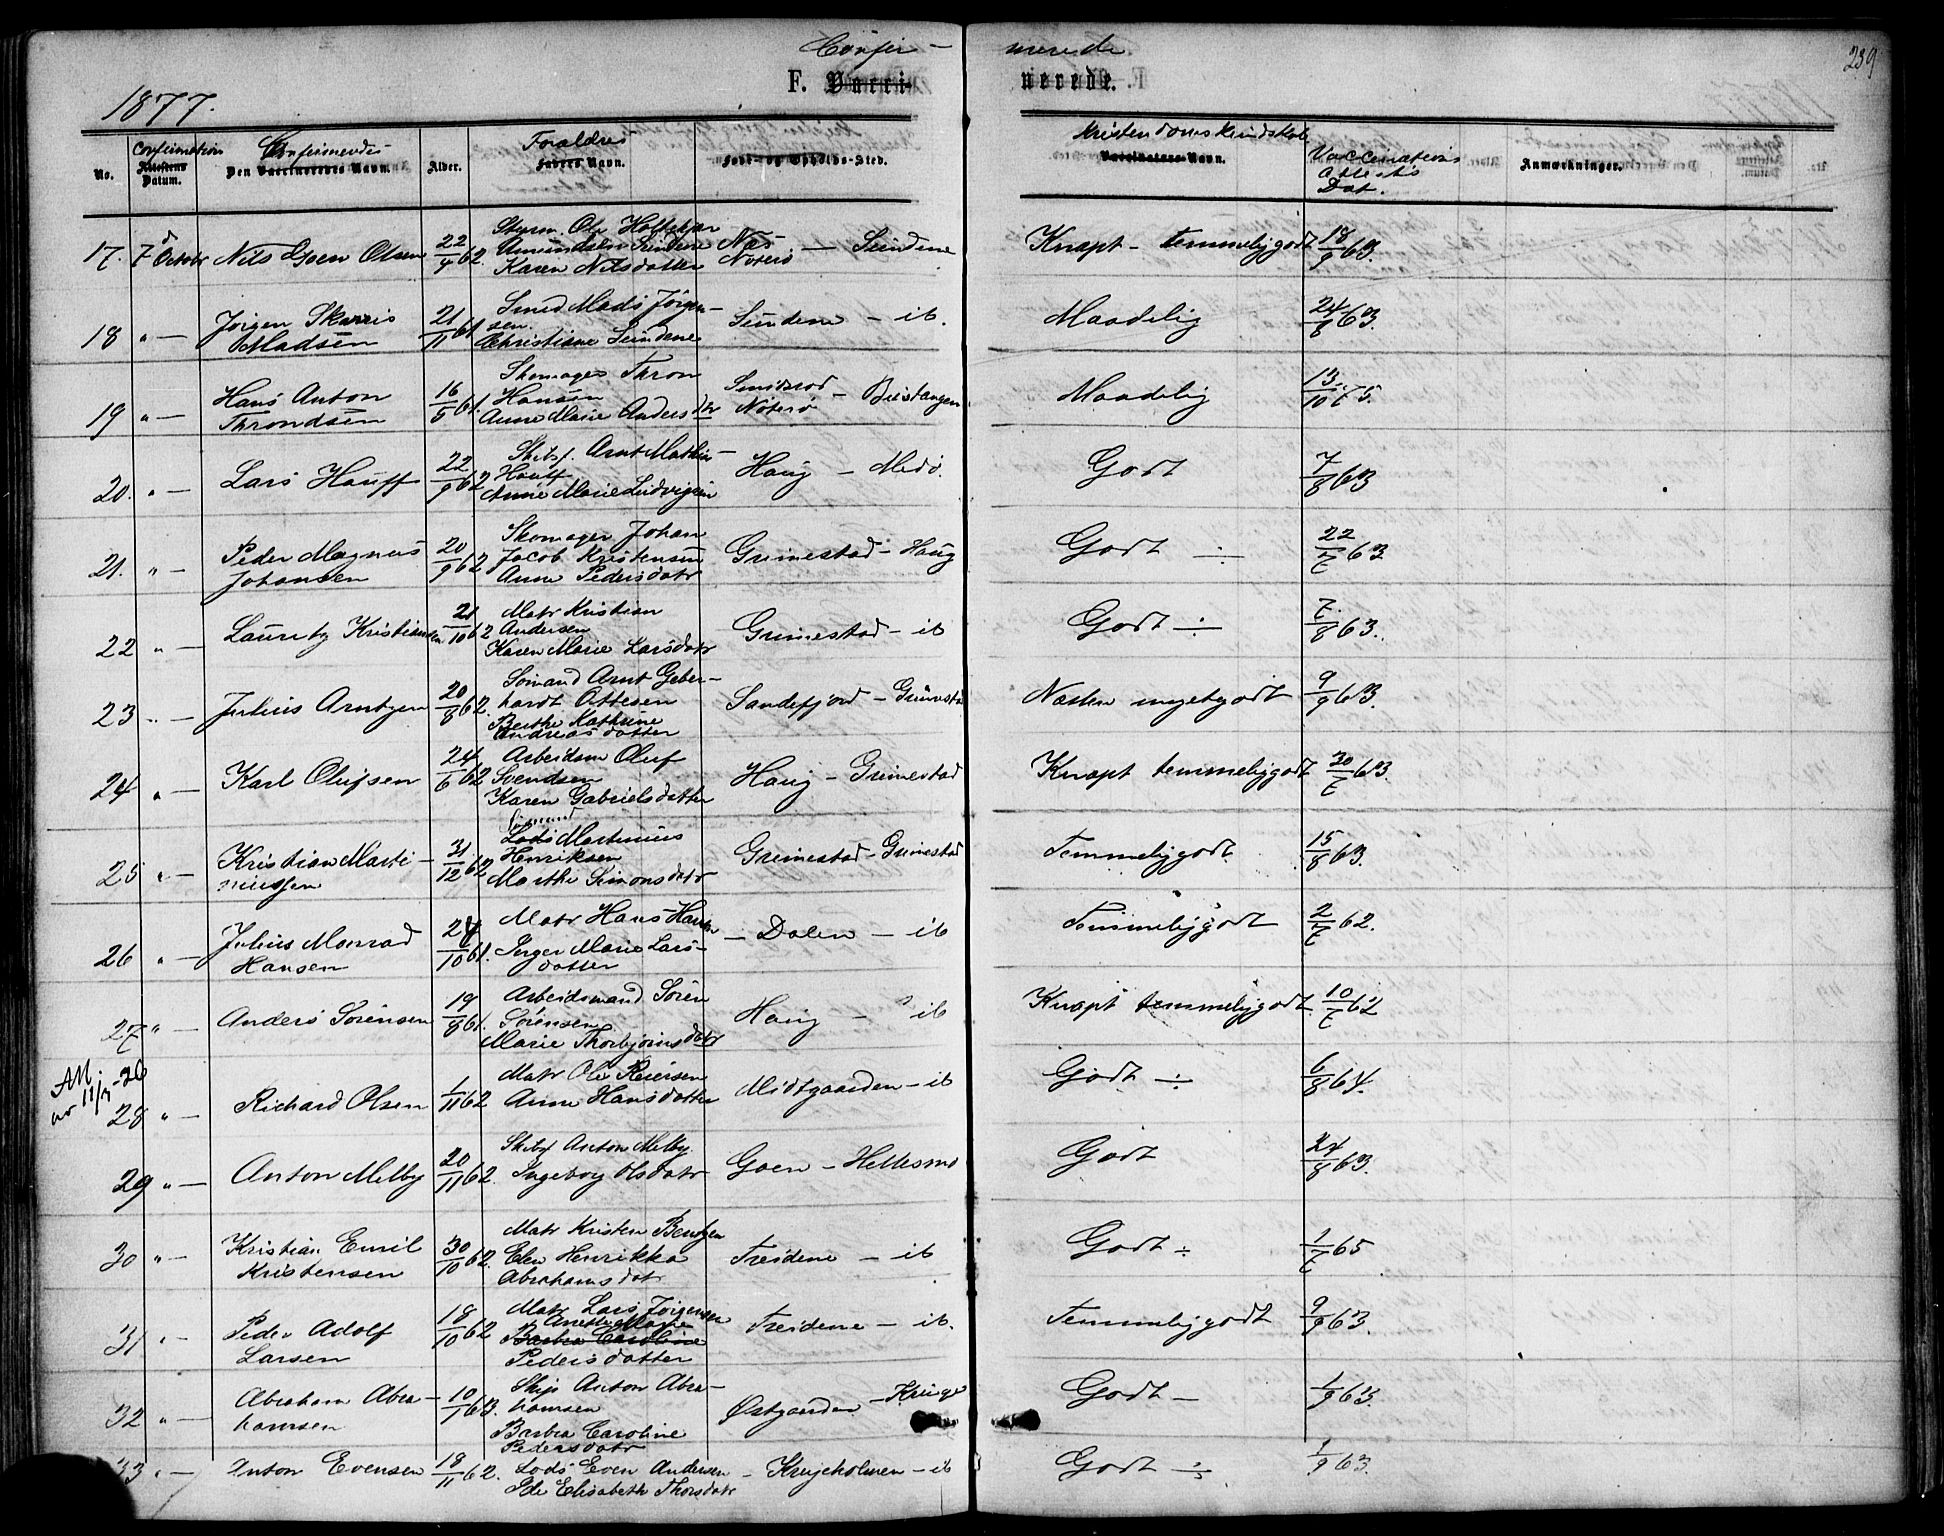 Confir - merede 239
F. Vacci- nerede.
1877.
No. Confirmation Attestens Datum. Confirmendes Den Vaccineredes Navn. Alder. Foraldres Faders Navn. Føde- og Opholds-Sted. Kristendomskundskab Vaccinateurs Navn. Vaccinations Attests Dat. Anmærkninger.
17. 7d October Nils Goen Olsen 22/4 62. Styrm. Ole Holtekjær Amundsen Sundene Karen Nilsdatter Næs Noterø — Sundene Knapt - temmeligodt 18/9 63.
18 " — Jørgen Skarris Madsen 21/11 61 Smed Mads Jörgensen. Christiane Sundene Sundene - ib. Maadelig 24/8 63.
19 " — Hans Anton Throndsen 16/5 61. Skomager Thron Hansen Anne Marie Andersdtr Smidsrod Noterø - Buestangen Maadelig 13/10 75.
20. " — Lars Hauff 22/9 62 Skibsf. Arnt Mathias Hauff Anne Marie Ludvigsen Haug - Medö. Godt 7/8 63
21. " — Peder Magnus Johansen 20/9 62 Skomager Johan Jacob Kristensen Anne Pedersdatr Grimestad - Haug Godt ÷ 22/7 63
22 " — Lauritz Kristiansen 21/10 62 Matr Kristian Andersen Karen Marie Larsdatr Grimestad - ib Godt ÷ 7/8 63.
23 " — Julius Arntzen 20/8 62. Sömand Arnt Geberhardt Ottesen Berthe Kathrine Andreasdatter Sandefjord - Grimestad Næsten megetgodt 9/9 63.
24 " — Karl Olufsen 24/6 62 Arbeidsm Oluf Svendsen Karen Gabrielsdatter Haug - Grimestad Knapt temmeligodt 30/7 63.
25 " — Kristian Martiniussen 31/12 62 Sömand Lods Martinius Henriksen Marthe Simonsdatr Grimestad - Grimestad Temmeligodt 15/8 63.
26 " — Julius Monrad Hansen 24/10 61. Matr Hans Hansen Inger Marie Larsdatter - Dalen - ib Temmeligodt 2/7 62.
27 " — Anders Sörensen 19/8 61. Arbeidsmand Sören Sörensen Marie Thorbjörnsdatr Haug - ib Knapt temmeligodt 10/7 62
28 " — Richard Olsen 1/11 62 Matr Ole Reiersen Anne Hansdatter Midtgaarden - ib Godt ÷ 6/8 64.
29 " — Anton Melby 20/11 62. Skibsf Anton Melby. Ingeborg Olsdatr Goen - Hellesmo Godt 24/8 63.
30 " — Kristian Emil Kristensen 30/10 62. Matr Kristen Bentzen Elen Henrikka Abrahamsdatr Treidene - ib Godt ÷ 1/7 65
31 " — Peder Adolf Larsen 18/10 62 Matr Lars Jörgensen Anette Marie Barbra Caroline Pedersdatter Treidene - ib. Temmeligodt 9/9 63.
32 " — Abraham Abrahamsen 10/1 63. Skip Anton Abrahamsen Barbra Caroline Pedersdatr Østgaarden - Kruge Godt - 1/9 63.
33 " — Anton Evensen 18/11 62. Lods Even Andersen Ide Elisabeth Thorsdatr - Krugeholmen - ib Godt ÷ 1/9 63.